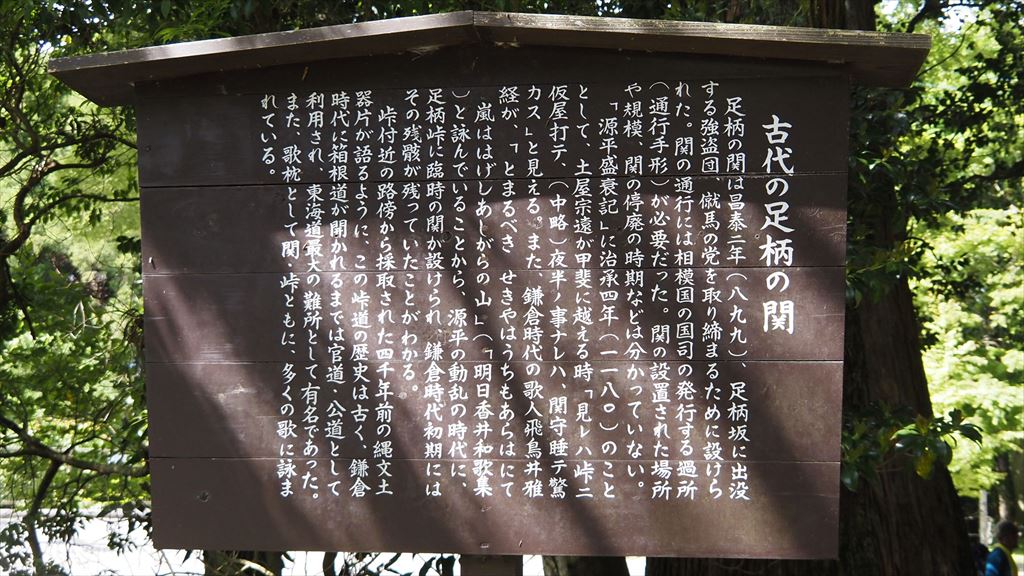 古代の足柄の関
足柄の関は昌泰二年(八九九)、足柄坂に出没
する強盗団、僦馬の党を取り締まるために設けら
れた。関の通行には相模国の国司の発行する過所
(通行手形)が必要だった。関の設置された場所
や規模、関の停廃の時期などは分かっていない。
「源平盛衰記」に治承四年(一一八〇)のこと
として、土屋宗遠が甲斐に越える時「見レハ峠ニ
仮屋打テ、(中略)夜半ノ事ナレハ、関守睡テ驚
カス」と見える。また、鎌倉時代の歌人飛鳥井雅
経が、「とまるべき せきやはうちもあらはにて
嵐ははげしあしがらの山」(「明日香井和歌集」
)と詠んでいることから、源平の動乱の時代に、
足柄峠に臨時の関が設けられ、鎌倉時代初期には
その残骸が残っていたことがわかる。
峠付近の路傍から採取された四千年前の縄文土
器片が語るように、この峠道の歴史は古く、鎌倉
時代に箱根道が開かれるまでは官道、公道として
利用され、東海道最大の難所として有名であった。
また、歌枕として関、峠ともに、多くの歌に詠ま
れている。